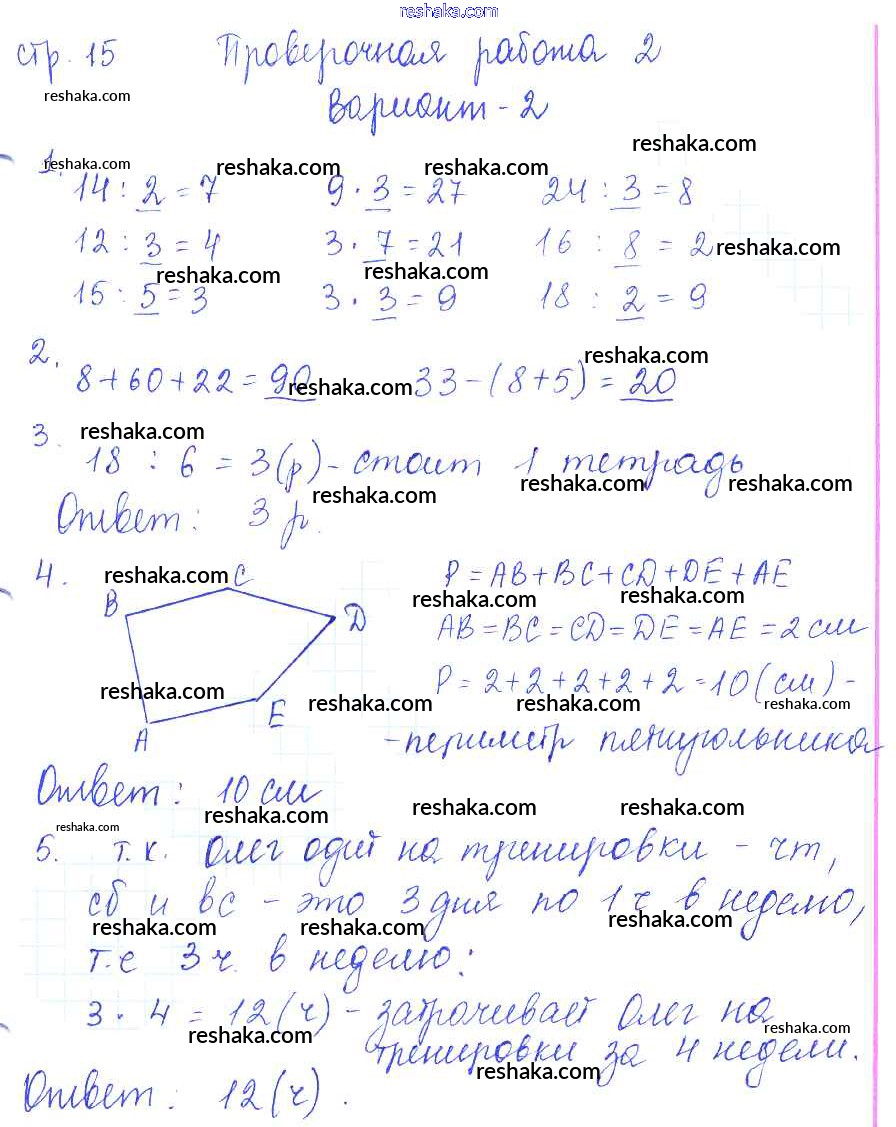 reshaka.com
стр. 15 Проверочная работа 2
reshaka.com
Вариант - 2
reshaka.com
1. reshaka.com reshaka.com reshaka.com
14 : 2 = 7 9 · 3 = 27 24 : 3 = 8
12 : 3 = 4 3 · 7 = 21 16 : 8 = 2 reshaka.com
reshaka.com reshaka.com
15 : 5 = 3 3 · 3 = 9 18 : 2 = 9
2. reshaka.com
8+60+22 = 90 reshaka.com 33-(8+5) = 20
3. reshaka.com
18 : 6 = 3(р) - стоит 1 тетрадь
reshaka.com reshaka.com reshaka.com
Ответ: 3 р.
4. reshaka.com C P = AB+BC+CD+DE+AE
B reshaka.com reshaka.com
D AB=BC=CD=DE=AE = 2 см
reshaka.com P = 2+2+2+2+2 = 10 (см) -
E reshaka.com reshaka.com reshaka.com
A - периметр пятиугольника
Ответ: 10 см
reshaka.com reshaka.com reshaka.com
reshaka.com
5. т.к. Олег одит на тренировки - чт,
сб и вс - это 3 дня по 1 ч в неделю,
reshaka.com reshaka.com reshaka.com
т.е 3 ч. в неделю:
3 · 4 = 12 (ч) - затрачивает Олег на
reshaka.com reshaka.com
тренировки за 4 недели.
reshaka.com
Ответ: 12 (ч).